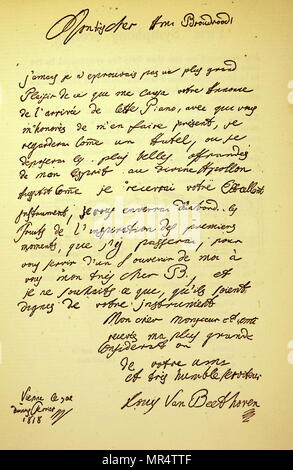 Mon très cher Ami Broadwood!
jamais je n'eprouvais pas un plus grand
Plaisir de ce que me causa votre Annonce
de l'arrivée de Cette Piano, avec que vous
m'honorès de m'en faire présent, je
regarderai Come un Autel, ou je
deposerai les plus belles offrandes
de mon Esprit au divine Apollon
Aussitôt Come je recevrai votre Excellent
Instrument, je vous enverrai d'abord les
Fruits de l'inspiration des premiers
moments, que j'y passerai, pour
vous servir d'un Souvenir de moi à
vous mon très cher B., et
je ne souhaits ce que, qu'ils soient
dignes de votre instrument
Mon cher Monsieur et ami
recevés ma plus grande
Consideration
de votre ami
et très humble serviteur
Louis Van Beethoven
Vienne le
du mois Fevrier
1818
a
alamy
Image ID: MR4TTF
www.alamy.com